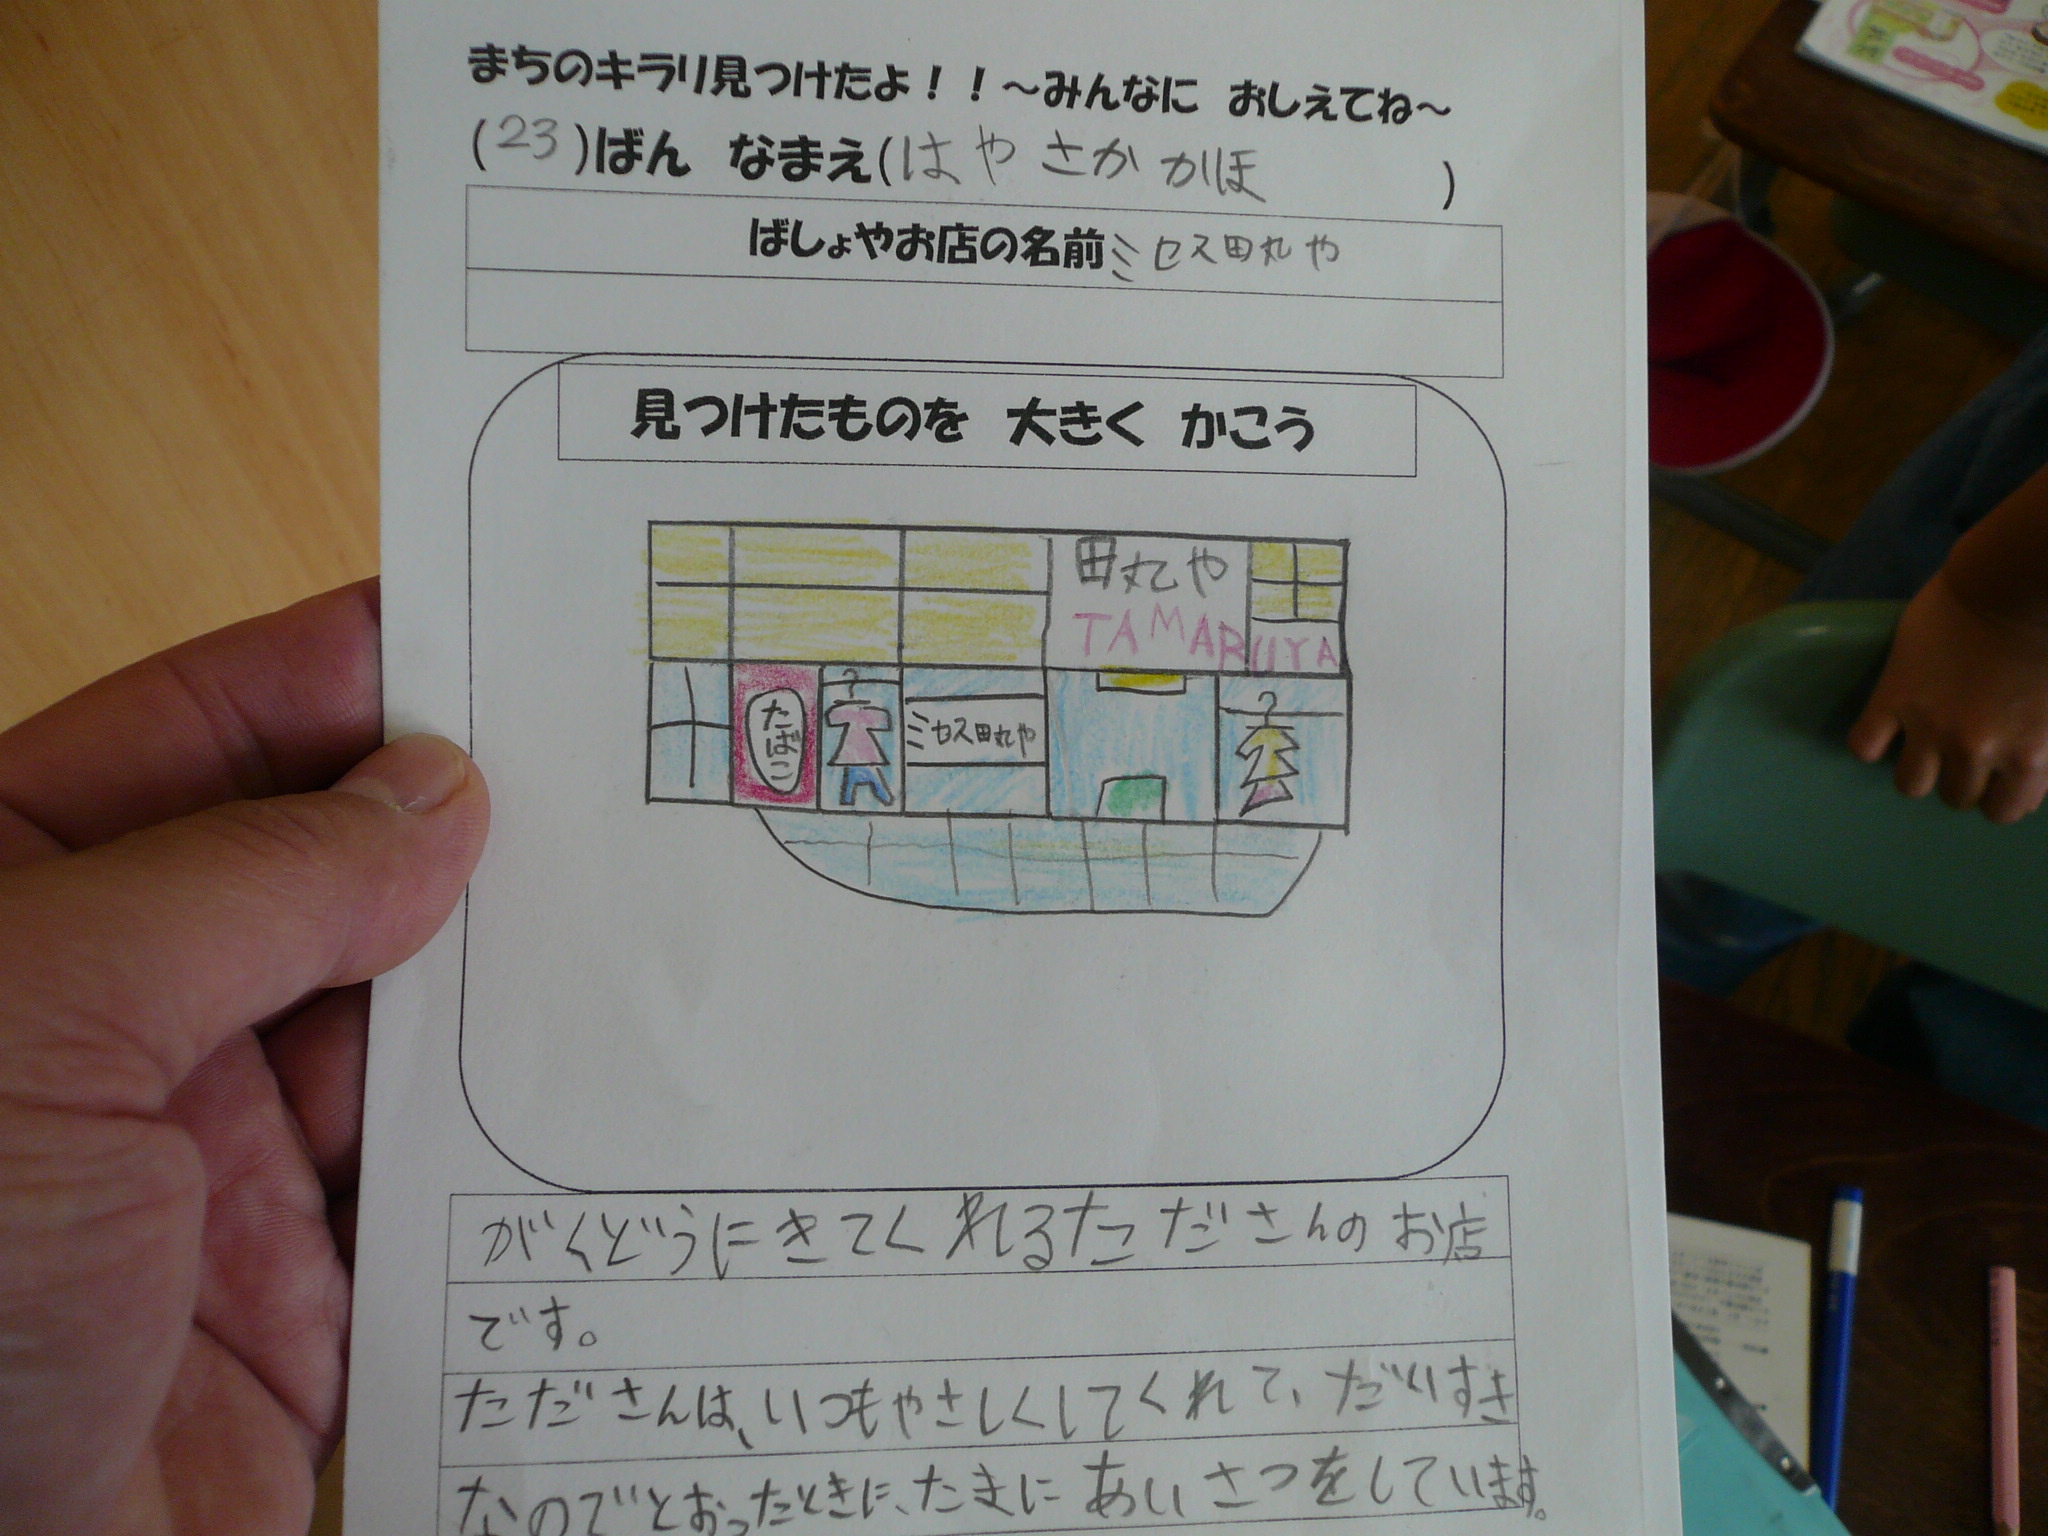 まちのキラリ見つけたよ！！～みんなに おしえてね～
(23)ばん なまえ(はやさか かほ)
ばしょやお店の名前 ミセス田丸や
見つけたものを 大きく かこう
田丸や
TAMARUYA
たばこ
ミセス田丸や
がくどうにきてくれるたださんのお店
です。
たださんは、いつもやさしくしてくれて、だいすき
なのでとおったときに、たまにあいさつをしています。